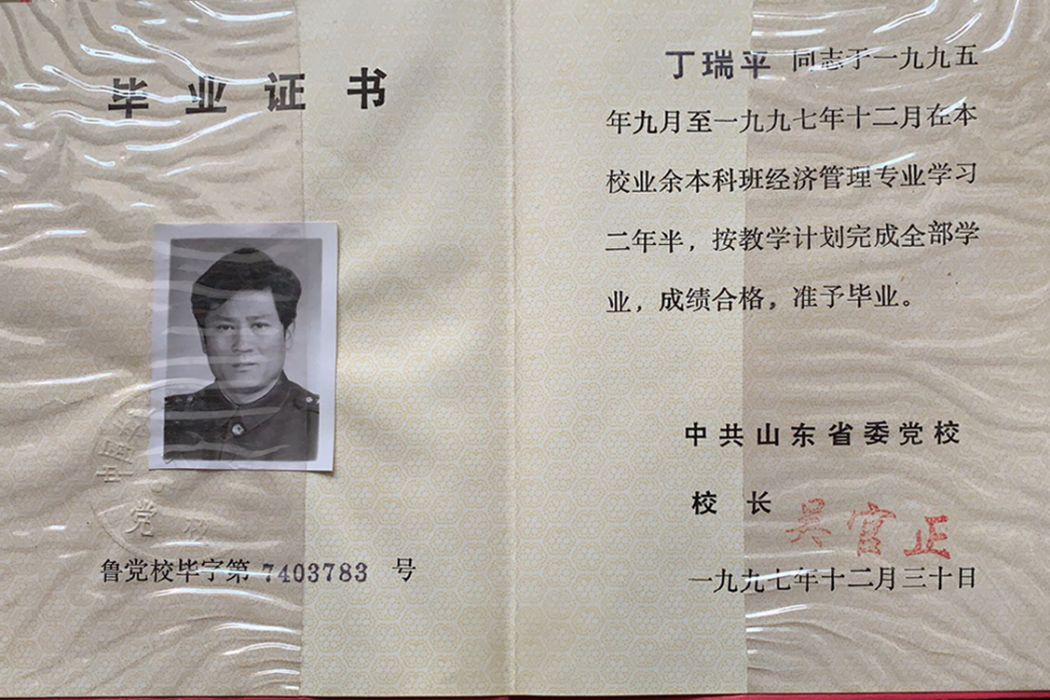 毕业证书
中国
党校
鲁党校毕字第 7403783 号
丁瑞平 同志于一九九五
年九月至一九九七年十二月在本
校业余本科班经济管理专业学习
二年半，按教学计划完成全部学
业，成绩合格，准予毕业。
中共山东省委党校
校长 吴官正
一九九七年十二月三十日